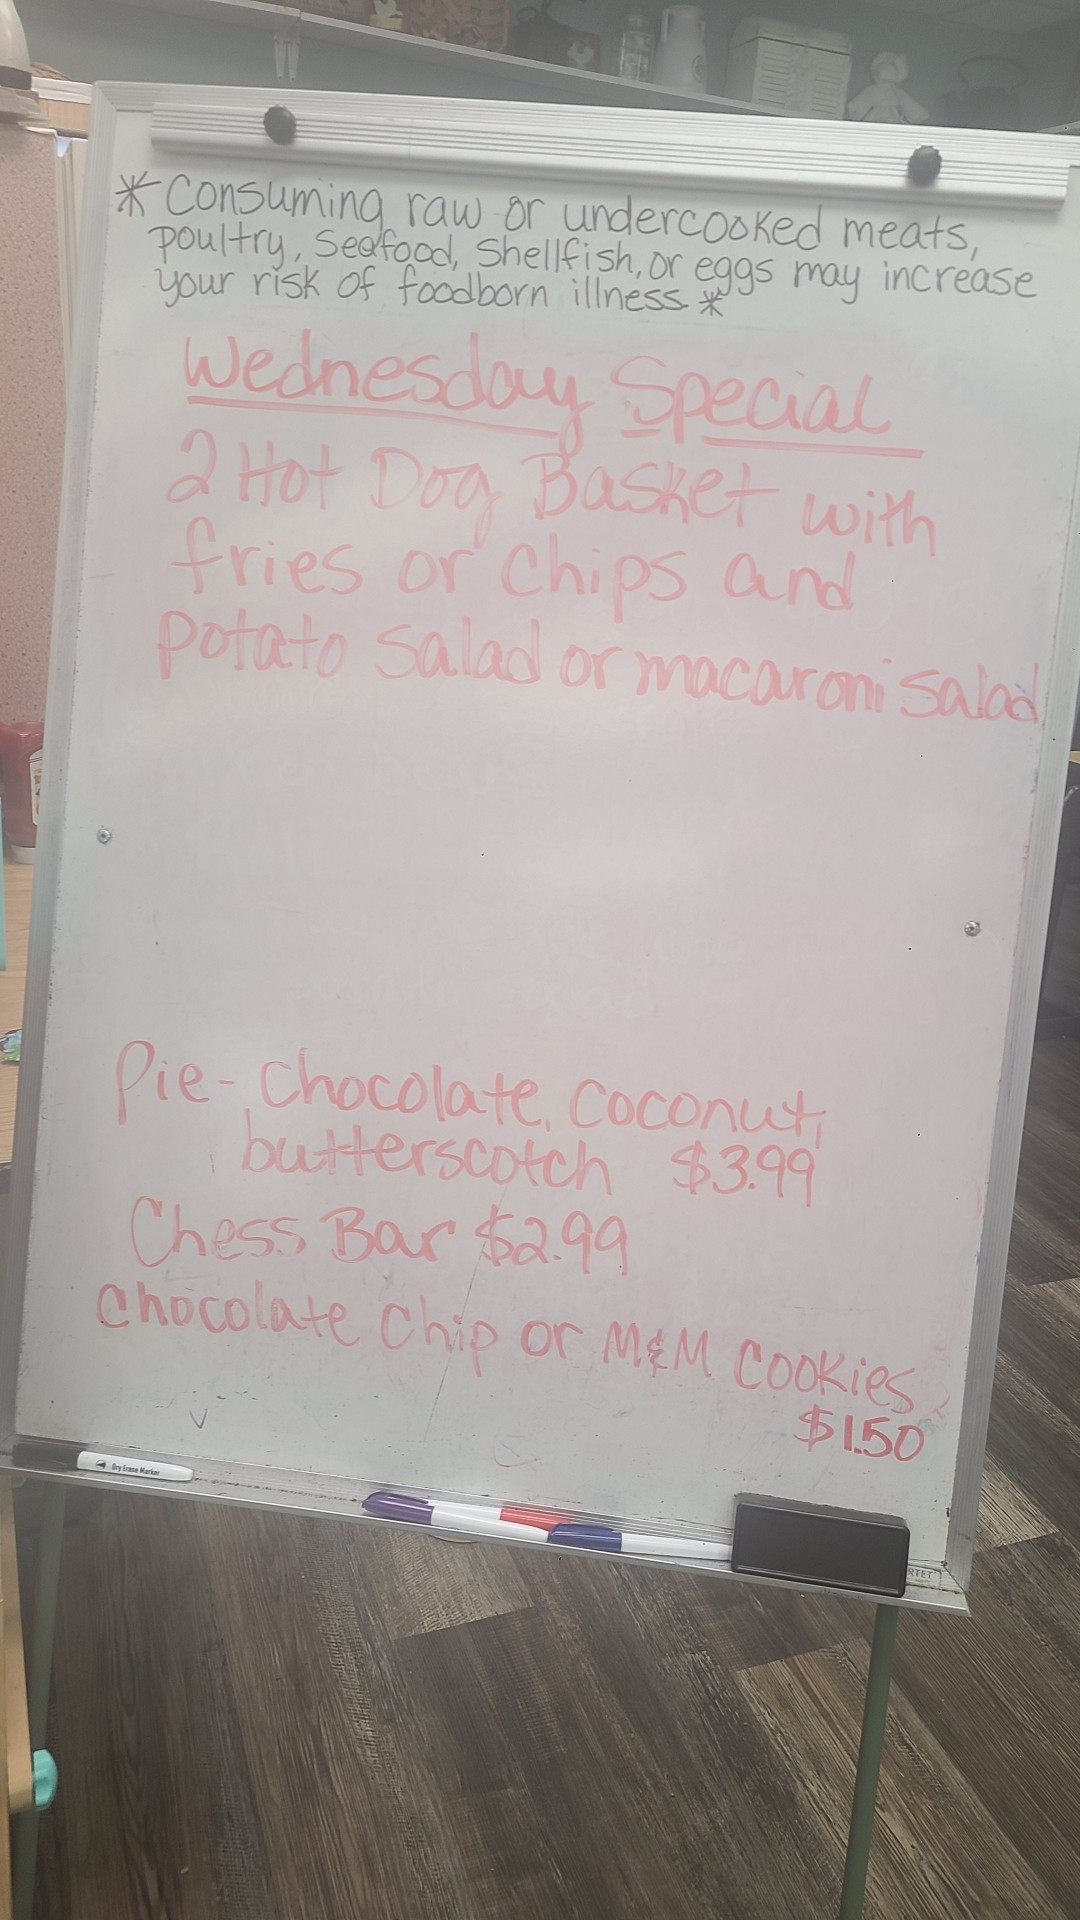 * Consuming raw or undercooked meats,
poultry, seafood, shellfish, or eggs may increase
your risk of foodborn illness *
Wednesday Special
2 Hot Dog Basket with
fries or chips and
potato salad or macaroni salad
Pie- Chocolate, Coconut,
butterscotch $3.99
Chess Bar $2.99
Chocolate Chip or M&M Cookies
$1.50
Dry Erase Marker